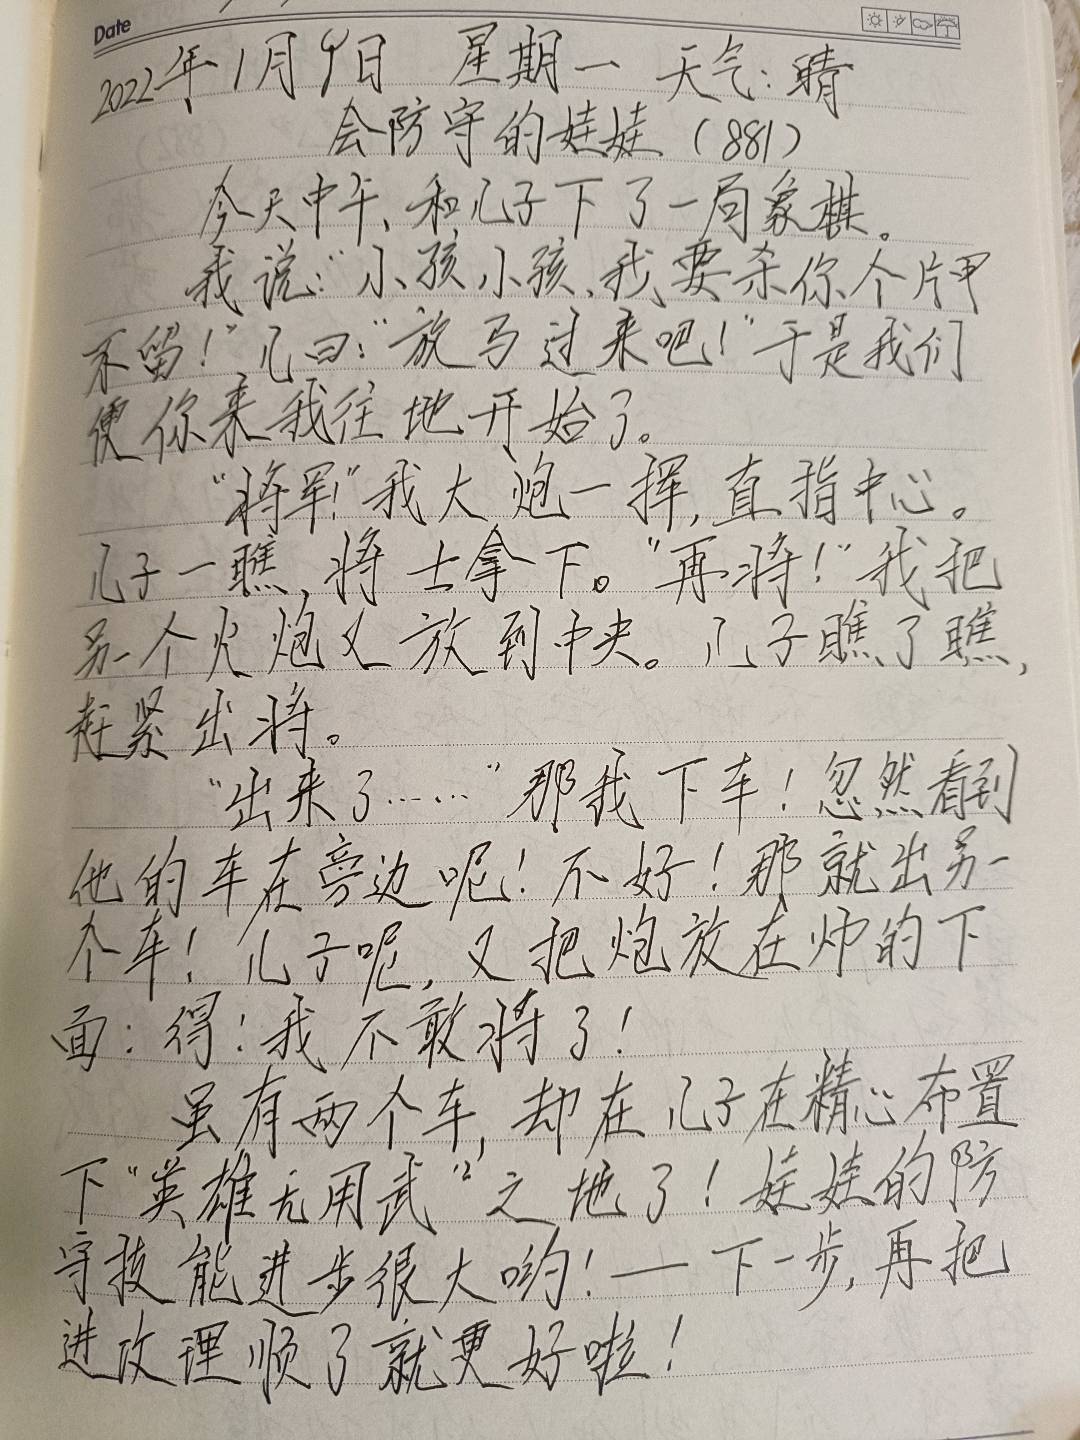 Date
2022年1月9日 星期一 天气:晴
会防守的娃娃(881)
今天中午、和儿子下了一局象棋。
我说:"小孩小孩,我要杀你个片甲
不留!"儿曰:"放马过来吧!"于是我们
便你来我往地开始了。
"将军!"我大炮一挥,直指中心。
儿子一瞧,将士拿下。"再将!"我把
另一个火炮又放到中央。儿子瞧了瞧,
赶紧出将。
"出来了……"那我下车!忽然看到
他的车在旁边呢!不好!那就出另一
个车!儿子呢,又把炮放在炉的下
面:得!我不敢将了!
虽有两个车,却在儿子在精心布置
下"英雄无用武"之地了!娃娃的防
守技能进步很大哟!——下一步,再把
进攻理顺了就更好啦!